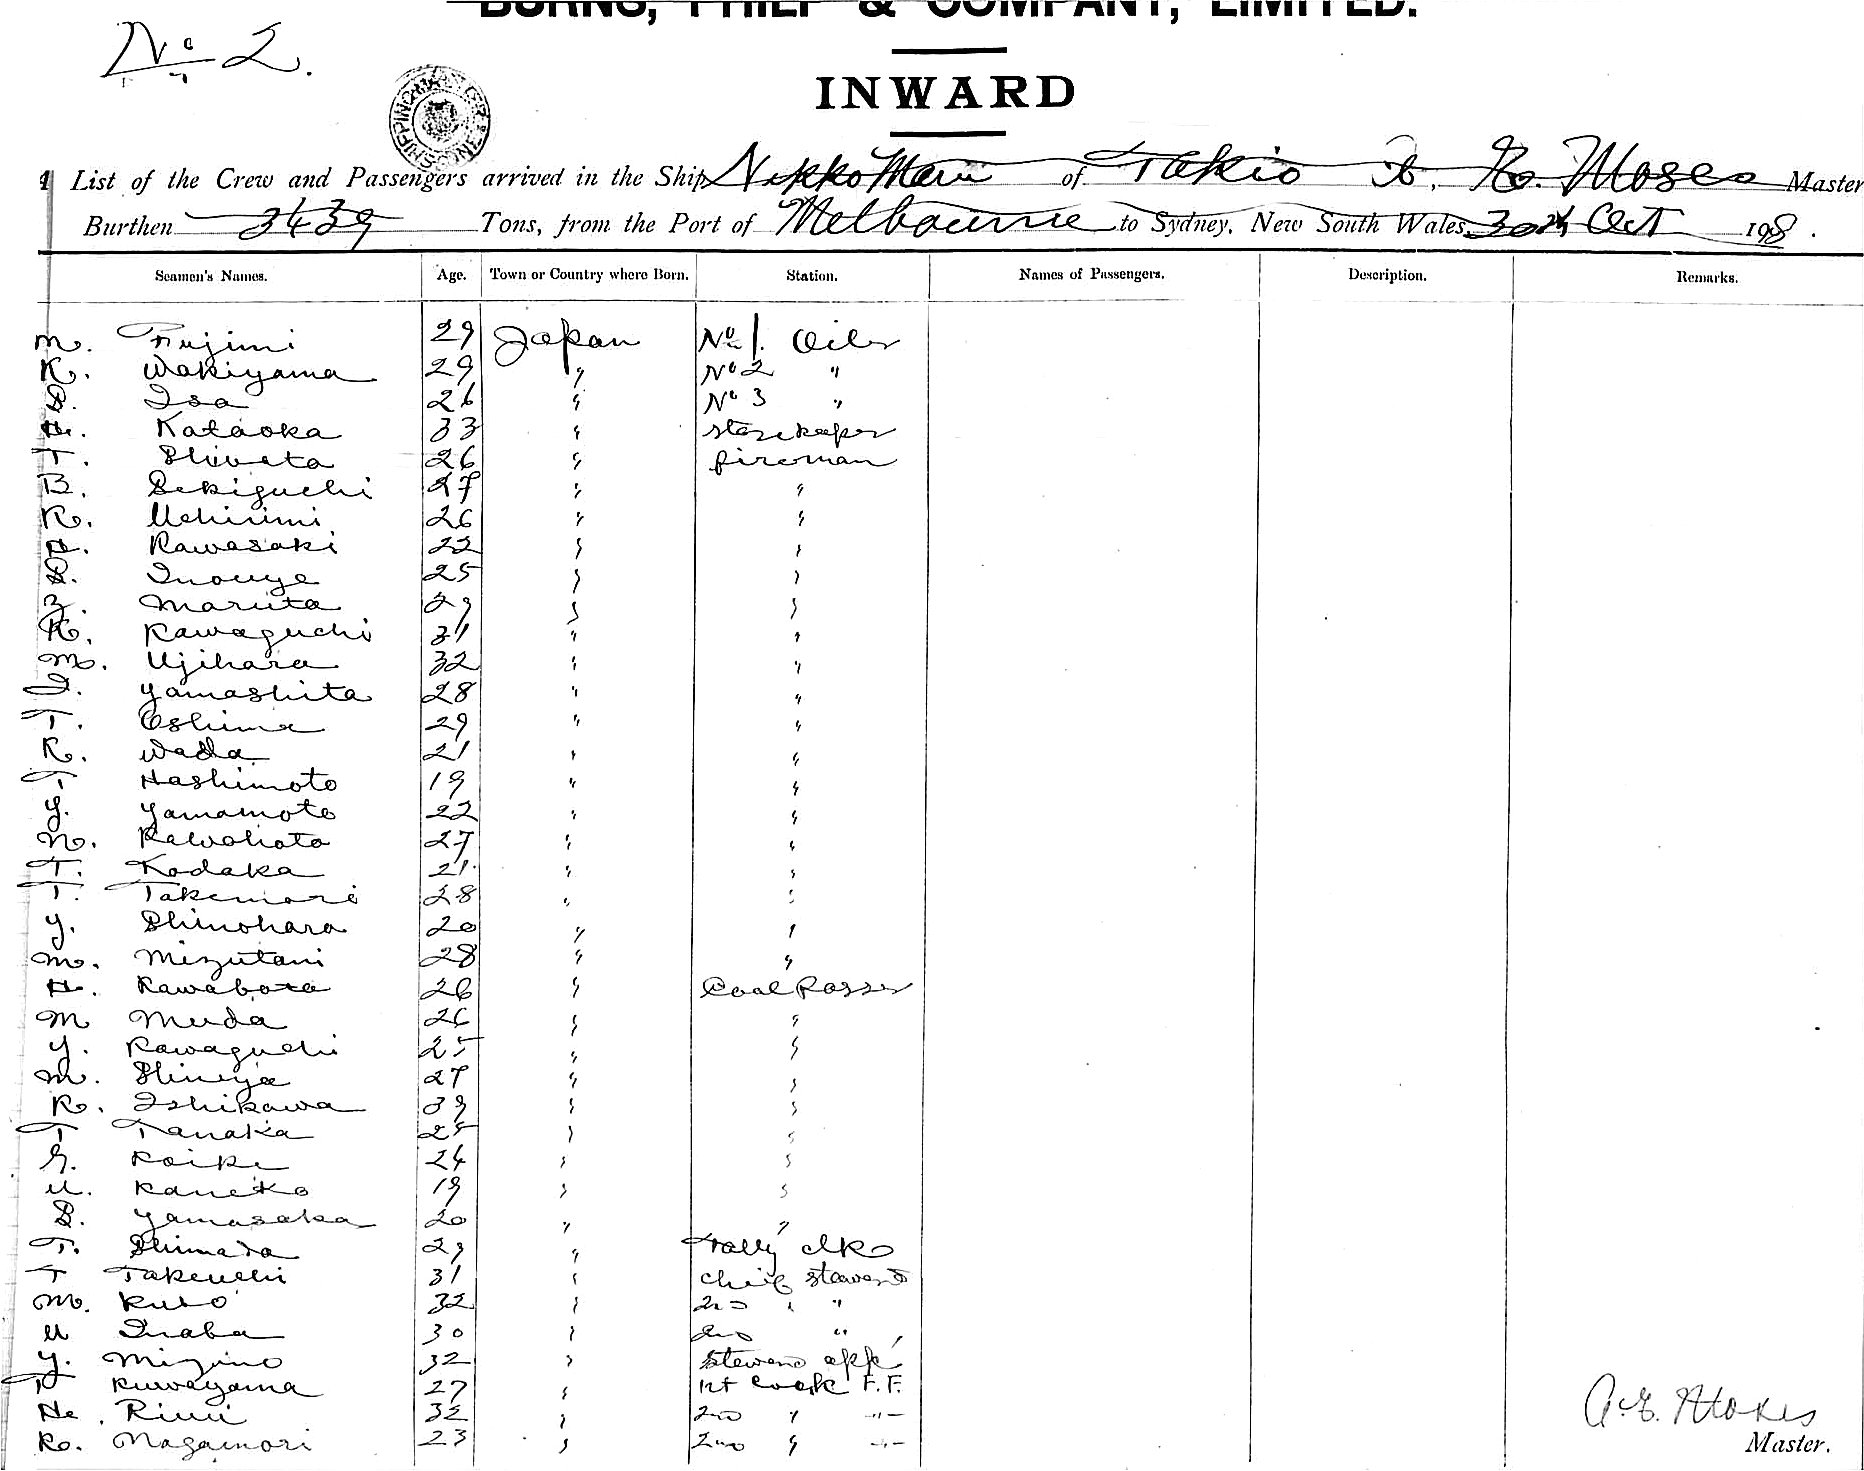 BURNS, PHILP & COMPANY, LIMITED.
No 2.
INWARD
List of the Crew and Passengers arrived in the Ship Nikko Maru of Tokio Master
Burthen 3439 Tons, from the Port of Melbourne to Sydney, New South Wales, 30th Oct 198.
Seamen's Names. Age. Town or Country where Born. Station. Names of Passengers. Description. Remarks.
M. Fujimi 29 Japan No 1. Oiler
K. Wakiyama 29 " No 2 "
S. Isa 26 " No 3 "
H. Kataoka 33 " storekeeper
T. Shibata 26 " fireman
B. Sekiguchi 27 " "
K. Uchiumi 26 " "
H. Kawasaki 22 " "
S. Inouye 25 " "
Z. Maruta 29 " "
K. Kawaguchi 31 " "
M. Ujihara 32 " "
I. Yamashita 28 " "
T. Oshima 29 " "
K. Wada 21 " "
T. Hashimoto 19 " "
Y. Yamamoto 22 " "
N. Kawahata 27 " "
T. Kodaka 21 " "
T. Takemori 28 " "
Y. Shinohara 20 " "
M. Mizutani 28 " "
H. Kawabata 26 " Coal Passer
M Muda 26 " "
Y. Kawaguchi 25 " "
M. Shinya 27 " "
K. Ishikawa 39 " "
T Tanaka 25 " "
G. Koike 24 " "
U. Kaneko 19 " "
S. Yamasaka 20 " "
T. Shimada 29 " Tally Clk
T Takeuchi 31 " Chief Steward
M. Kubo 32 " 2nd " "
U Inaba 30 " 2nd "
Y. Mizuno 32 " Steward app
T Kuwayama 27 " 1st Cook F.F.
H. 32 " 2nd " "
K. Nagamori 23 " 2nd " "
Master.